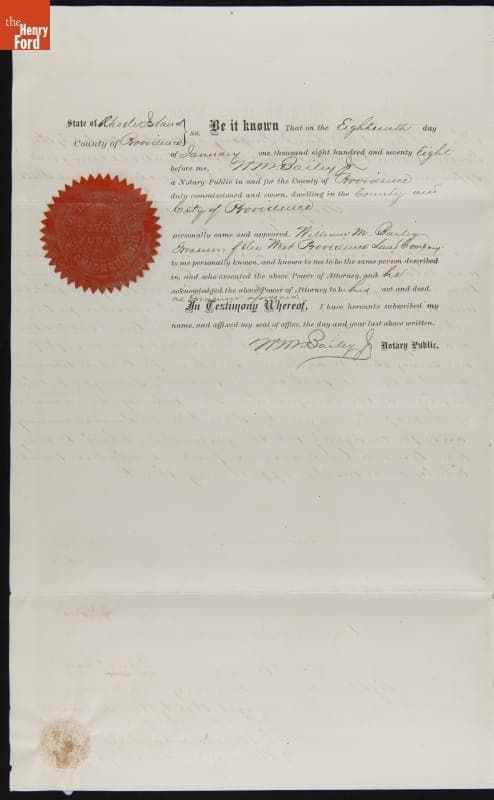 the
Henry
Ford
State of Rhode Island
County of Providence } ss.
Be it known That on the Eighteenth day
of January one thousand eight hundred and seventy Eight
before me, Wm Bailey Jr
a Notary Public in and for the County of Providence
duly commissioned and sworn, dwelling in the County and
City of Providence
personally came and appeared William M. Bailey
Treasurer of the West Providence Land Company
to me personally known, and known to me to be the same person described
in, and who executed the above Power of Attorney, and he
acknowledged the above Power of Attorney to be his act and deed.
as Treasurer aforesaid
In Testimony Whereof, I have hereunto subscribed my
name, and affixed my seal of office, the day and year last above written.
Wm Bailey Jr Notary Public.
NOTARY
PUBLIC